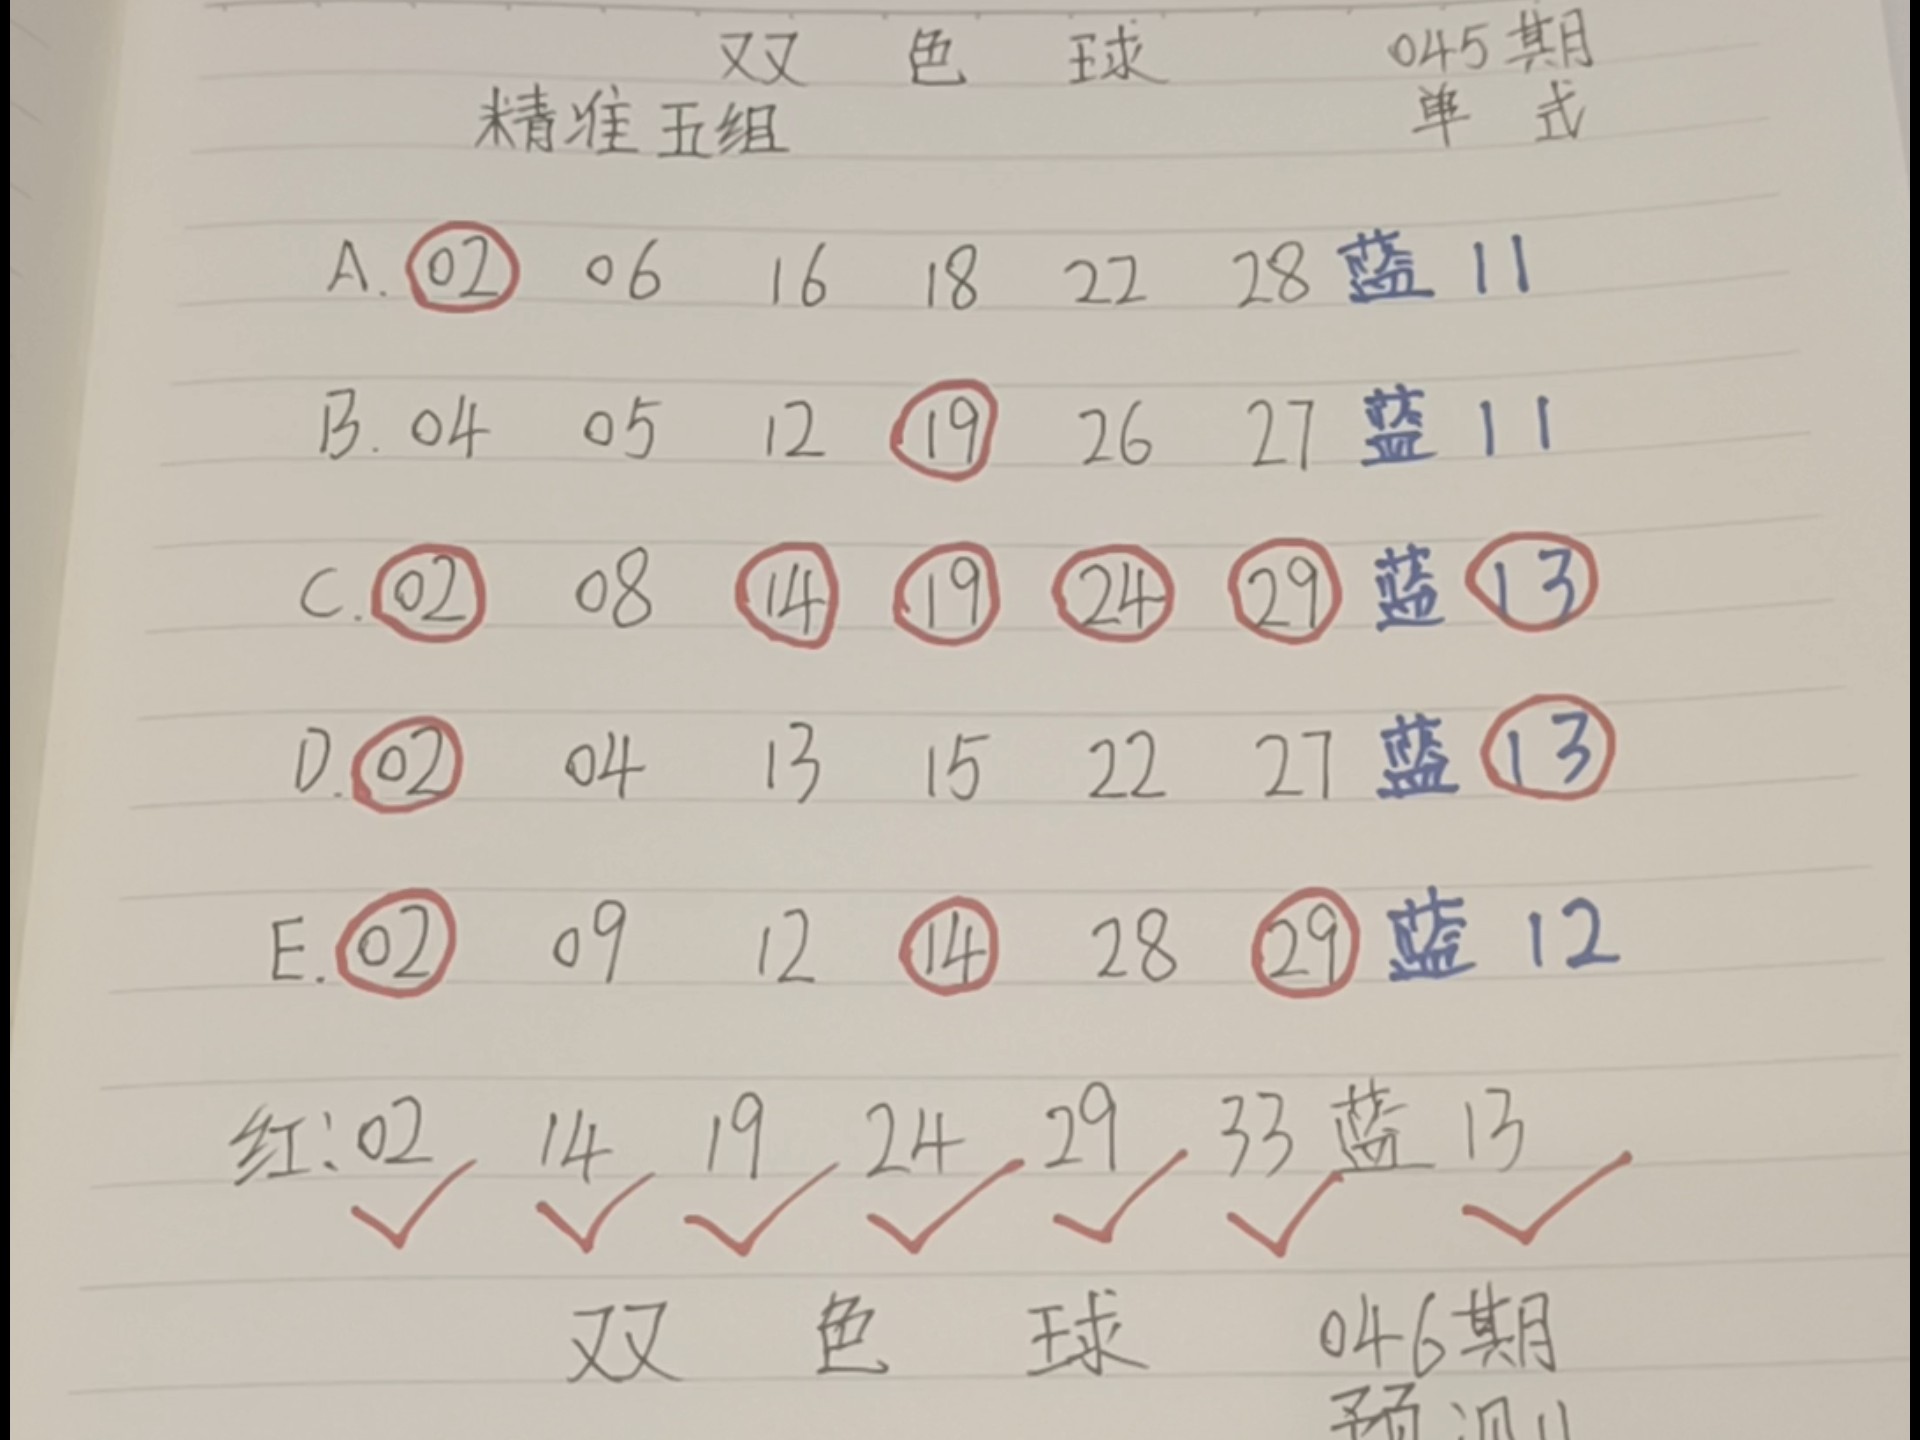 双 色 球 045期
精准五组 单 式
A. 02 06 16 18 22 28 蓝 11
B. 04 05 12 19 26 27 蓝 11
C. 02 08 14 19 24 29 蓝 13
D. 02 04 13 15 22 27 蓝 13
E. 02 09 12 14 28 29 蓝 12
红: 02 14 19 24 29 33 蓝 13
双 色 球 046期
预测